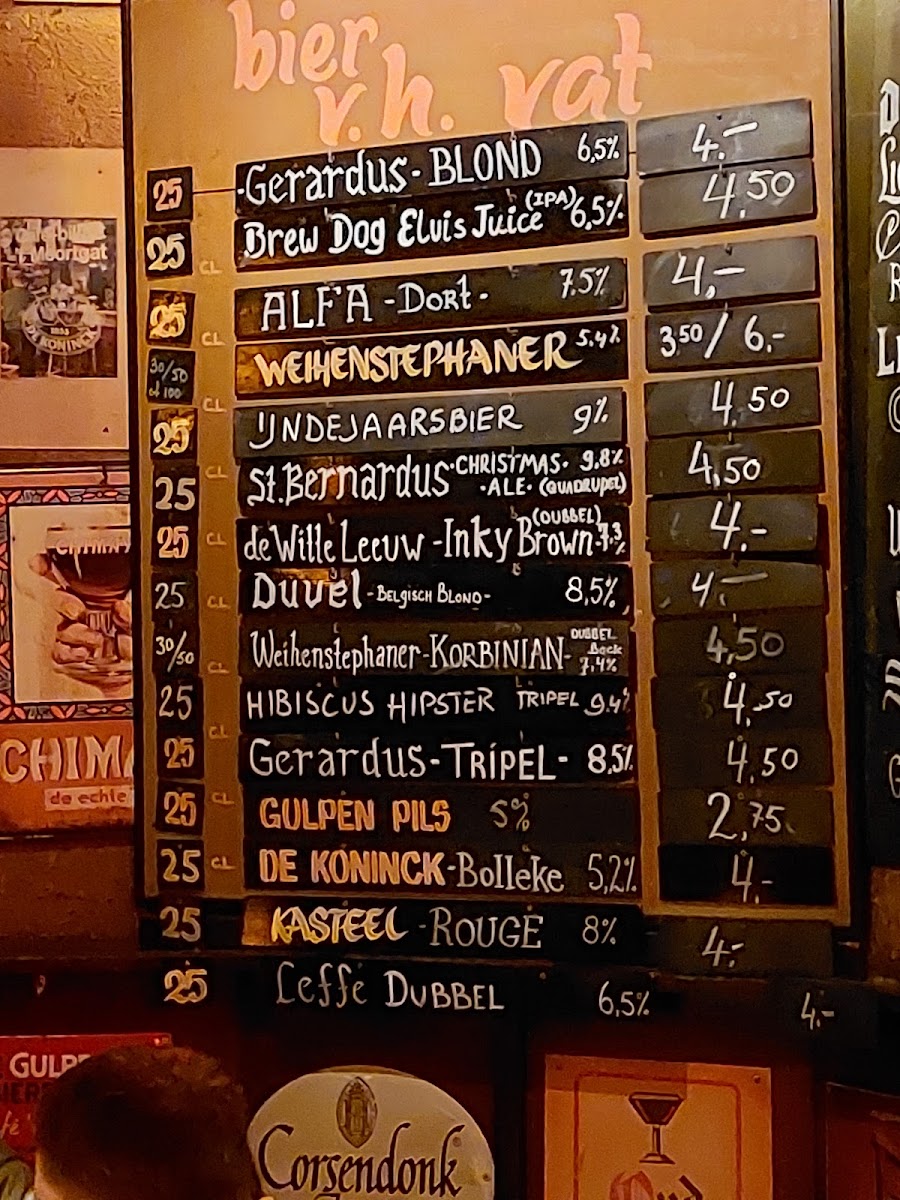 bier
v.h. vat
25 -Gerardus- BLOND 6,5% 4.-
25 CL Brew Dog Elvis Juice (IPA) 6,5% 4.50
25 CL ALFA -Dort- 7.5% 4,-
30/50 of 100 CL WEIHENSTEPHANER 5.4% 3.50 / 6.-
25 CL IJNDEJAARSBIER 9% 4.50
25 St.Bernardus ·CHRISTMAS· 9,8% 4,50
·ALE· (QUADRUPEL)
25 CL de Witte Leeuw -Inky Brown- (DUBBEL) 7.3% 4.-
25 CL Duvel -BELGISCH BLOND- 8,5% 4.-
30/50 CL Weihenstephaner-KORBINIAN- DUBBEL Bock 7,4% 4,50
25 CL HIBISCUS HIPSTER TRIPEL 9.4% 4,50
25 Gerardus-TRIPEL- 8.5% 4.50
25 CL GULPEN PILS 5% 2,75
25 CL DE KONINCK-Bolleke 5,2% 4.-
25 KASTEEL -ROUGE 8% 4.-
25 Leffe DUBBEL 6,5% 4.-
Moortgat
DE KONINCK
CHIMAY
CHIMA
de echte
GULPE
Corsendonk